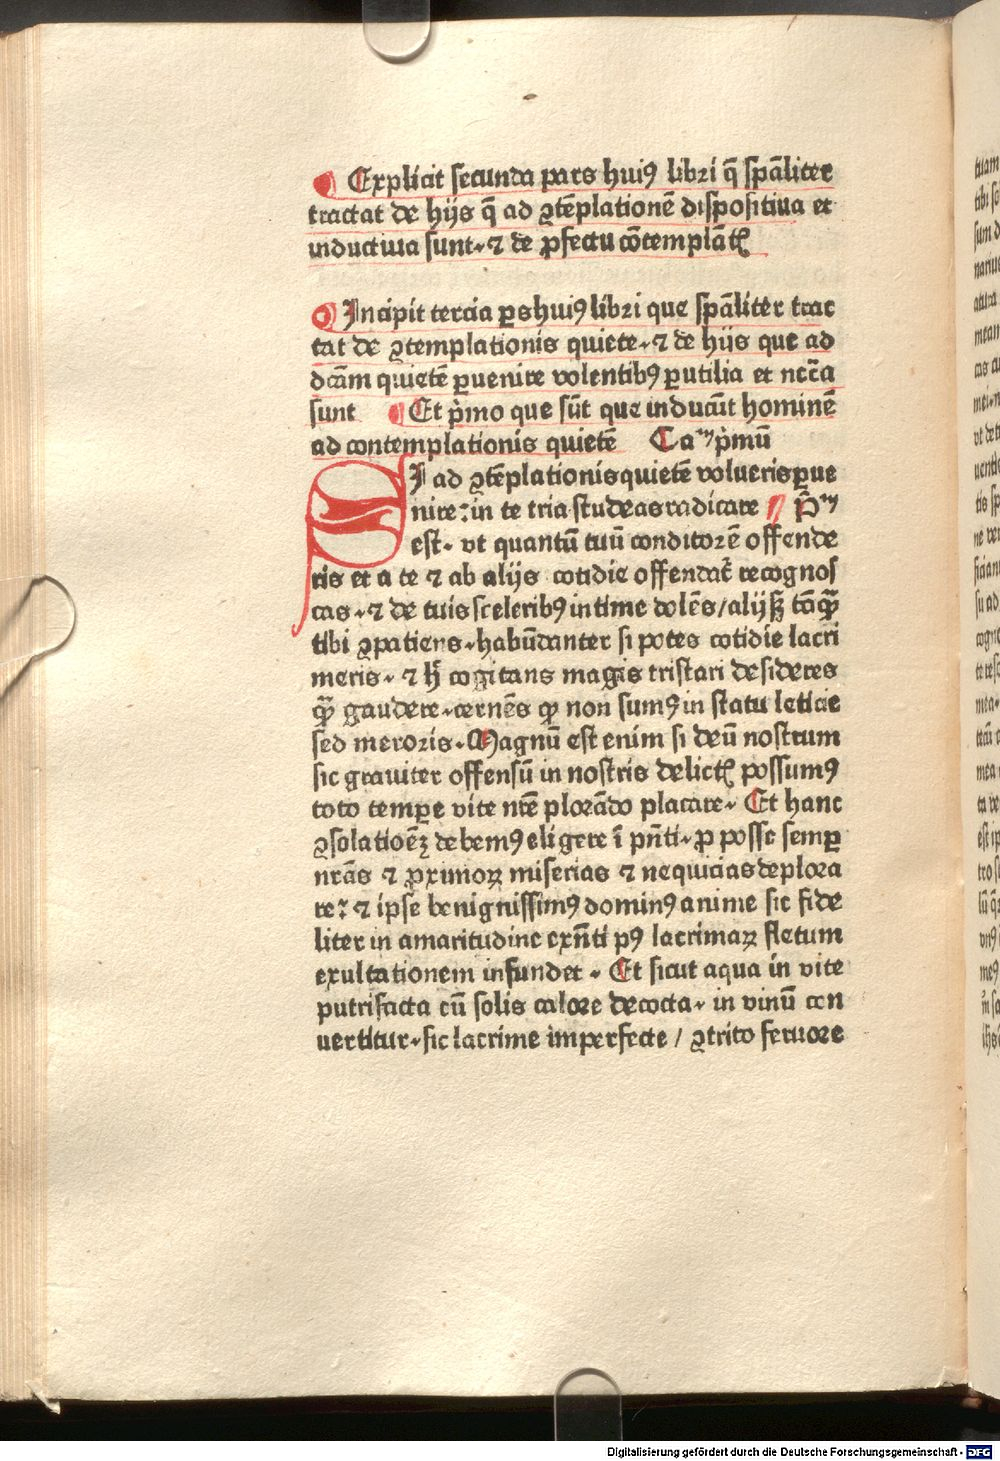 ¶ Explicit secunda pars huiꝰ libri q̄ sp̄aliter
tractat de hijs q̄ ad ꝯtēplationē dispositiua et
inductiua sunt· ⁊ de ꝓfectu cōtemplātꝭ
¶ Incipit tercia ꝑs huiꝰ libri que sp̄aliter trac
tat de ꝯtemplationis quiete· ⁊ de hijs que ad
dc̄am quietē ꝑuenire volentibꝰ ꝑutilia et ncc̄a
sunt ¶ Et p̄mo que sūt que inducūt hominē
ad contemplationis quietē Caᵐ p̄mū
SI ad ꝯtēplationis quietē volueris ꝑue
nire: in te tria studeas radicare ¶ P̄ᵐ
est· vt quantū tuū conditorē offende
ris et a te ⁊ ab alijs cotidie offendat᷑ recognos
cas· ⁊ de tuis sceleribꝰ intime dolēs/alijsqꝫ tāꝙ̄
tibi ꝯpatiens· habūdanter si potes cotidie lacri
meris· ⁊ h̄ cogitans magis tristari desideres
ꝙ̄ gaudere· cernēs ꝙ non sumꝰ in statu leticie
sed meroris· Magnū est enim si deū nostrum
sic grauiter offensū in nostris delictꝭ possumꝰ
toto tempꝑe vite nr̄e plorādo placare· Et hanc
ꝯsolatioēꝫ debemꝰ eligere ī pn̄ti· ꝓ posse semꝑ
nr̄as ⁊ ꝓximoꝝ miserias ⁊ nequicias deplora
re: ⁊ ipse benignissimꝰ dominꝰ anime sic fide
liter in amaritudine exn̄ti pꝰ lacrimaꝝ fletum
exultationem infundet· Et sicut aqua in vite
putrifacta cū solis calore decocta· in vinū con
uertitur· sic lacrime imperfecte / ꝯtrito feruore
Digitalisierung gefördert durch die Deutsche Forschungsgemeinschaft - DFG